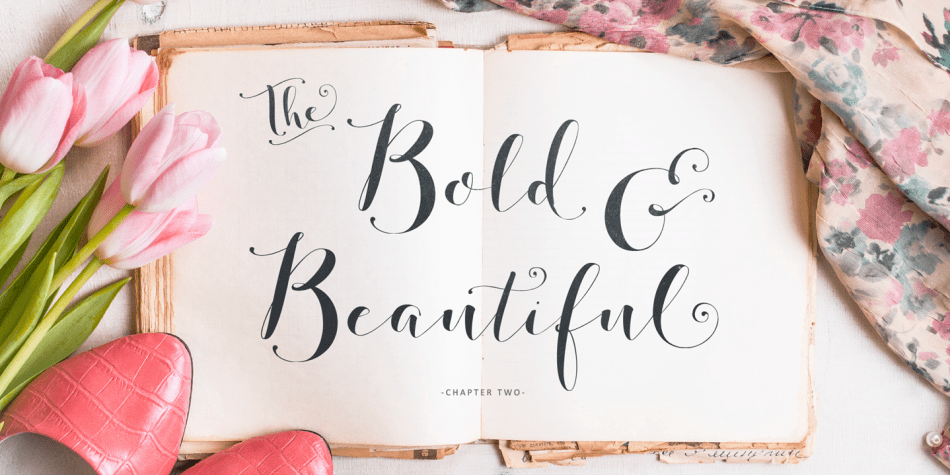 The
Bold &
Beautiful
-CHAPTER TWO-